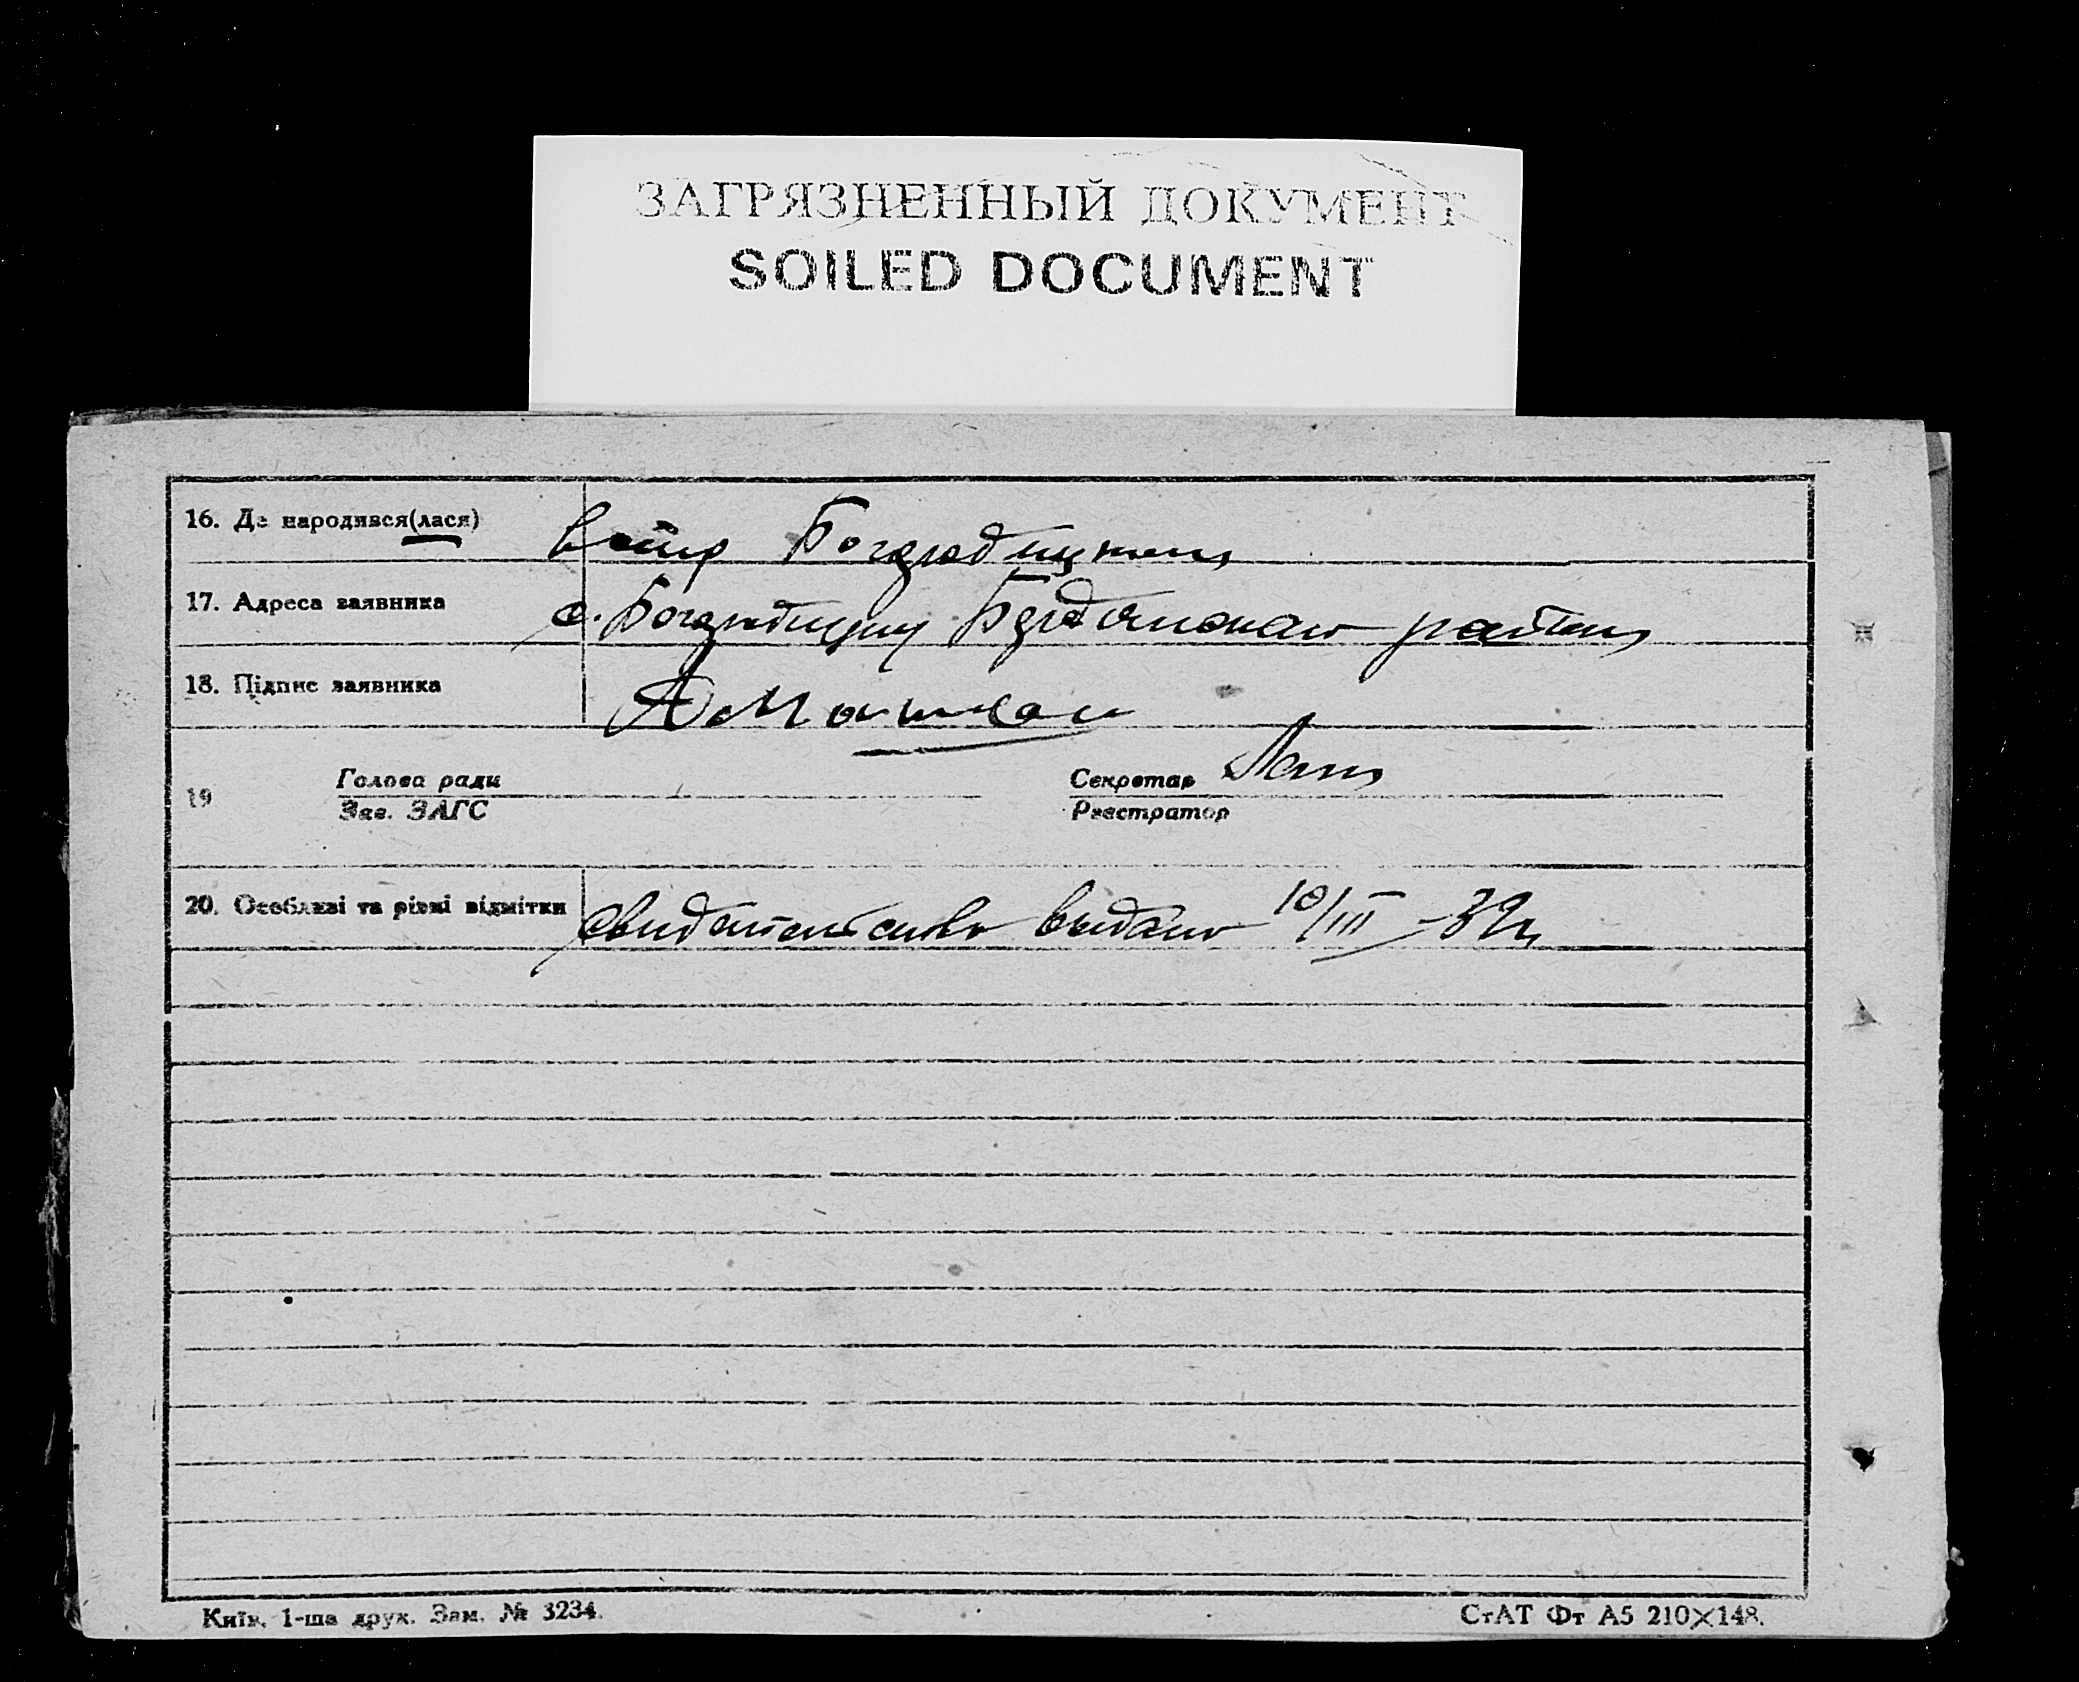 ЗАГРЯЗНЕННЫЙ ДОКУМЕНТ
SOILED DOCUMENT
16. Де народився(лася)
17. Адреса заявника с. района
18. Підпис заявника
19 Голова ради Секретар
Зав. ЗАГС Реєстратор
20. Особливі та різні відмітки свидетельство выдано 10/III-39г.
Київ. 1-ша друк. Зам. № 3234.
СтАТ Фт А5 210×148.